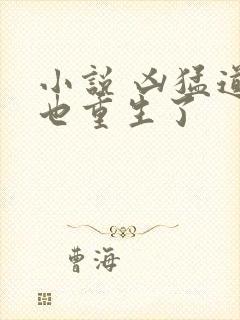 小说 凶猛道
也重生了
曹海